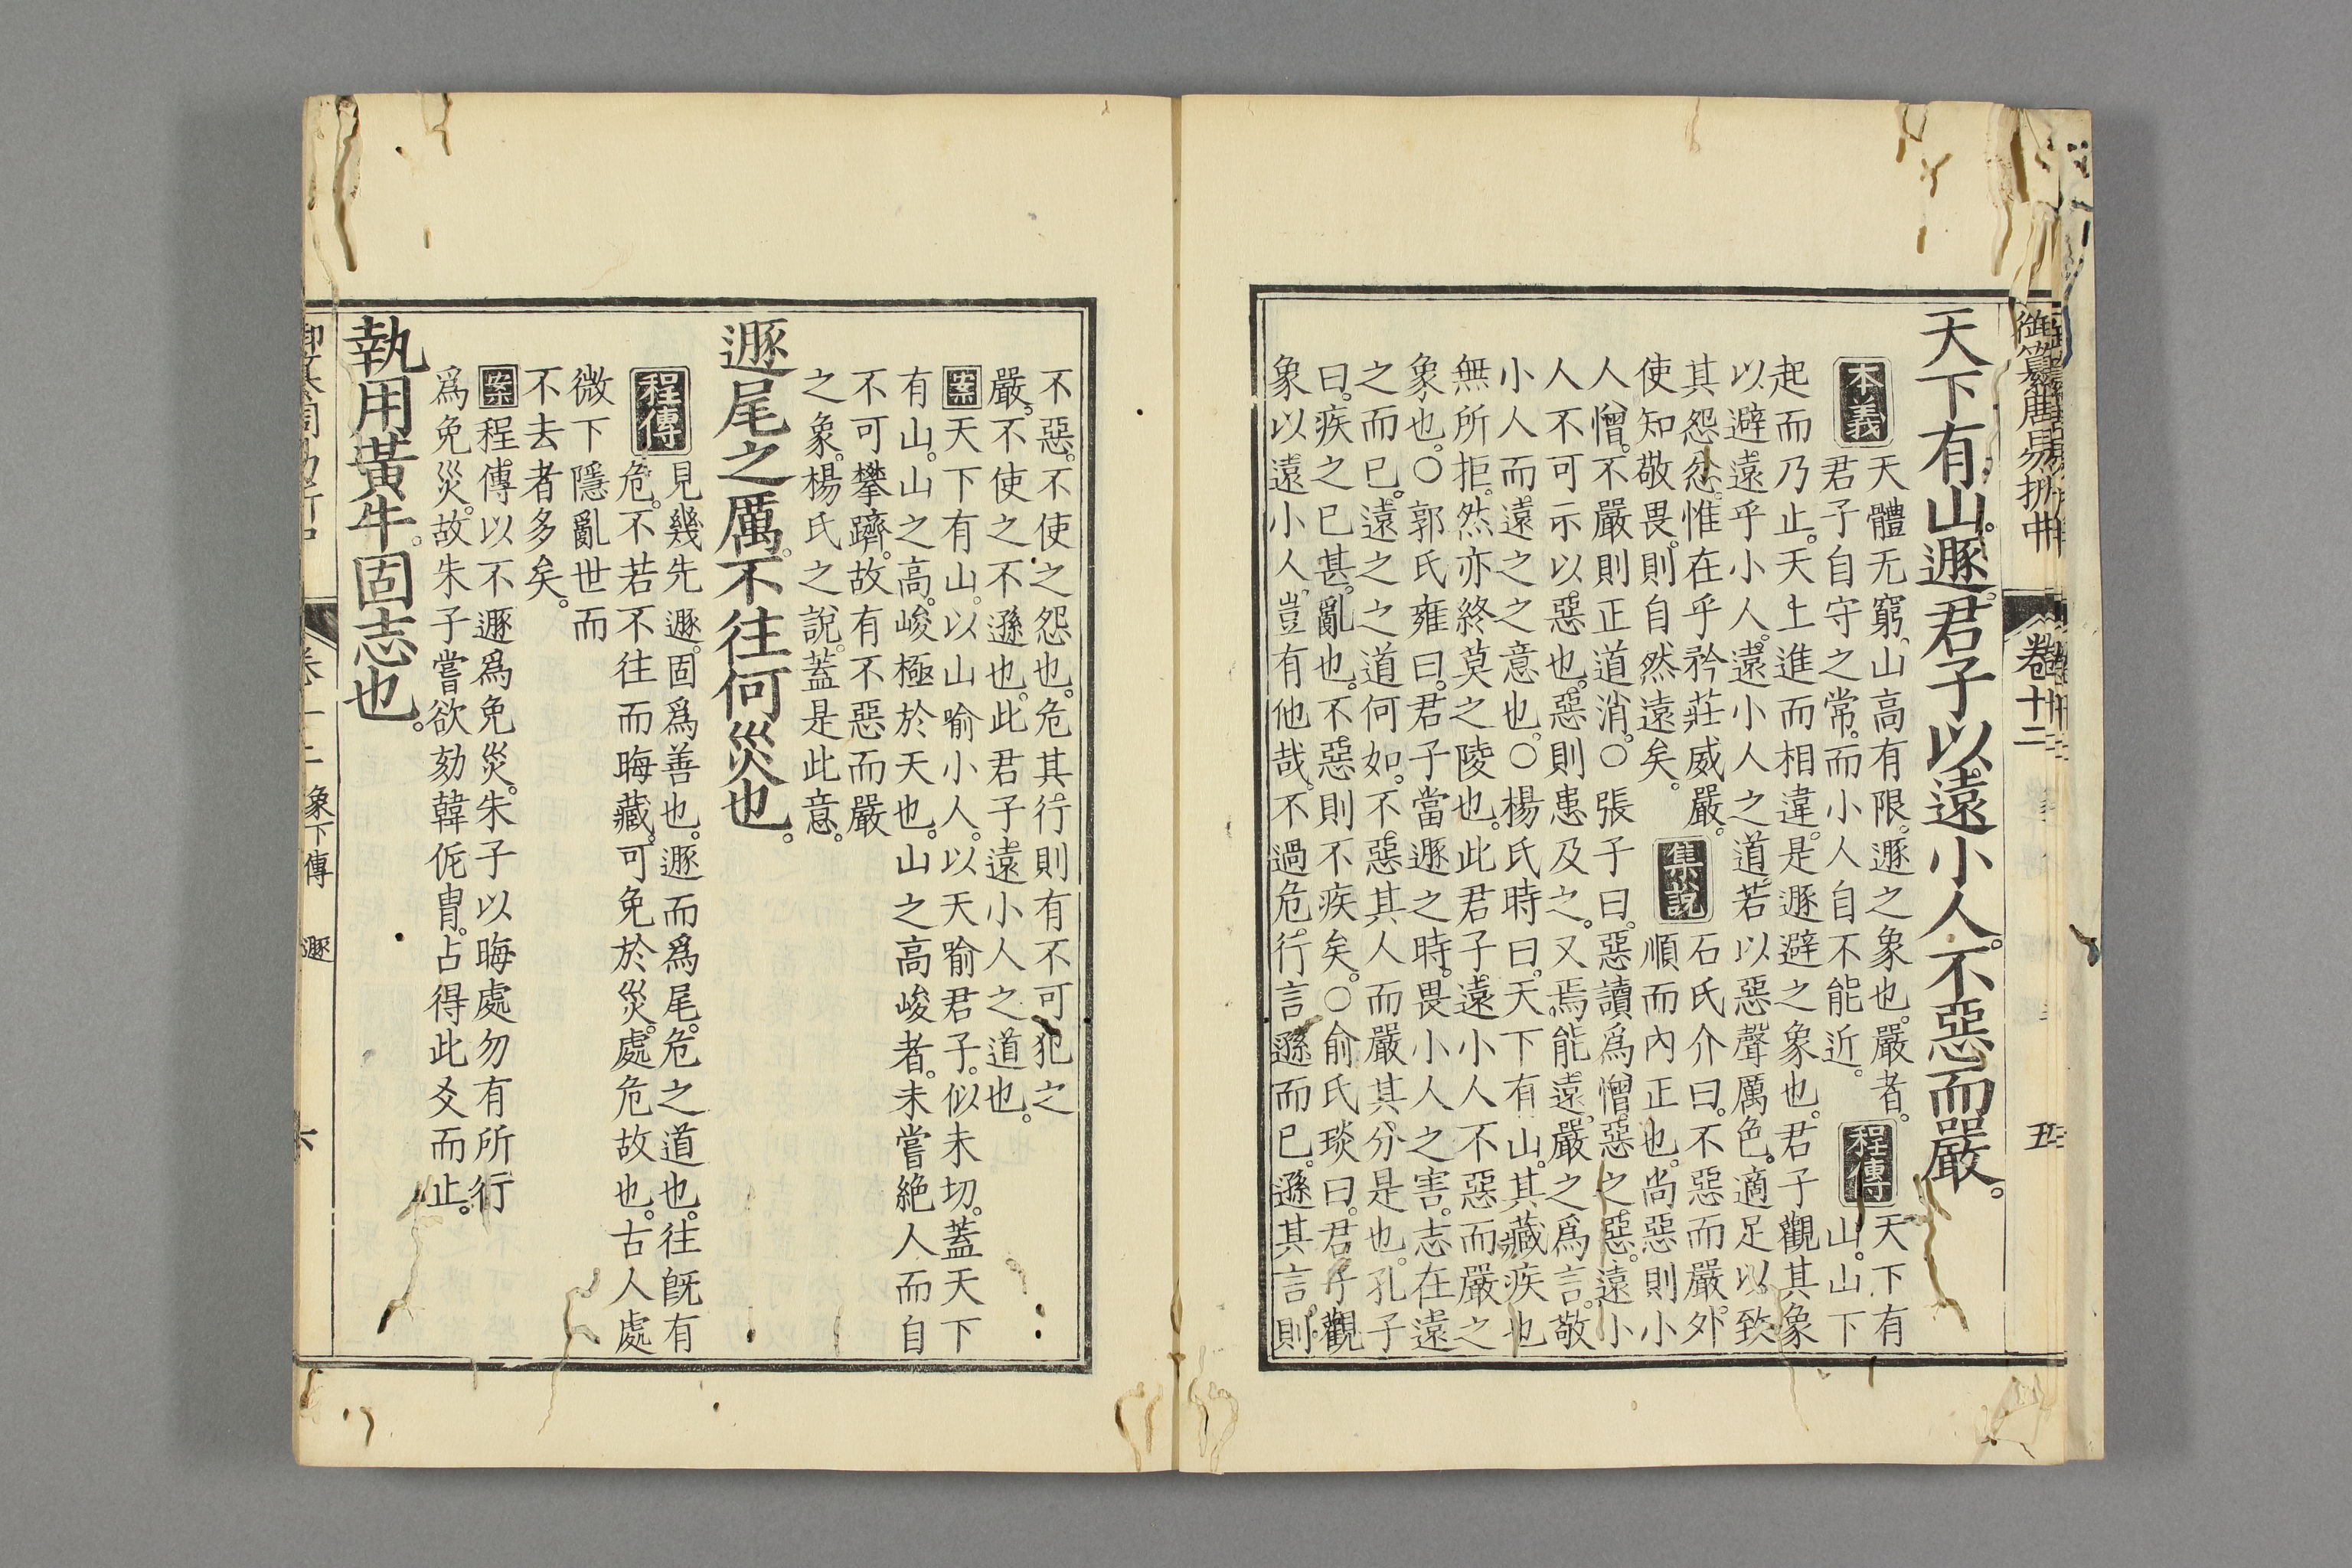 御纂周易折中
卷十二
五
天下有山。遯。君子以遠小人。不惡而嚴。
本義
天體无窮。山高有限。遯之象也。嚴者。
君子自守之常。而小人自不能近。
程傳
天下有
山。山下
起而乃止。天上進而相違。是遯避之象也。君子觀其象
以避遠乎小人。遠小人之道。若以惡聲厲色。適足以致
其怨忿。惟在乎矜莊威嚴。
使知敬畏。則自然遠矣。
集說
石氏介曰。不惡而嚴。外
順而內正也。尚惡則小
人憎。不嚴則正道消。○張子曰。惡讀爲憎惡之惡。遠小
人不可示以惡也。惡則患及之。又焉能遠。嚴之爲言。敬
小人而遠之之意也。○楊氏時曰。天下有山。其藏疾也
無所拒。然亦終莫之陵也。此君子遠小人不惡而嚴之
象也。○郭氏雍曰。君子當遯之時。畏小人之害。志在遠
之而已。遠之之道何如。不惡其人而嚴其分是也。孔子
曰。疾之已甚。亂也。不惡則不疾矣。○俞氏琰曰。君子觀
象以遠小人。豈有他哉。不過危行言遜而已。遜其言。則
不惡。不使之怨也。危其行則有不可犯之
嚴。不使之不遜也。此君子遠小人之道也。
案天下有山。以山喻小人。以天喻君子。似未切。蓋天下
有山。山之高。峻極於天也。山之高峻者。未嘗絶人而自
不可攀躋。故有不惡而嚴
之象。楊氏之說。蓋是此意。
遯尾之厲。不往何災也。
程傳
見幾先遯。固爲善也。遯而爲尾。危之道也。往旣有
危。不若不往而晦藏。可免於災。處危故也。古人處
微下隱亂世而
不去者多矣。
案程傳以不遯爲免災。朱子以晦處勿有所行
爲免災。故朱子嘗欲劾韓侂胄。占得此爻而止。
執用黃牛。固志也。
象下傳
遯
六